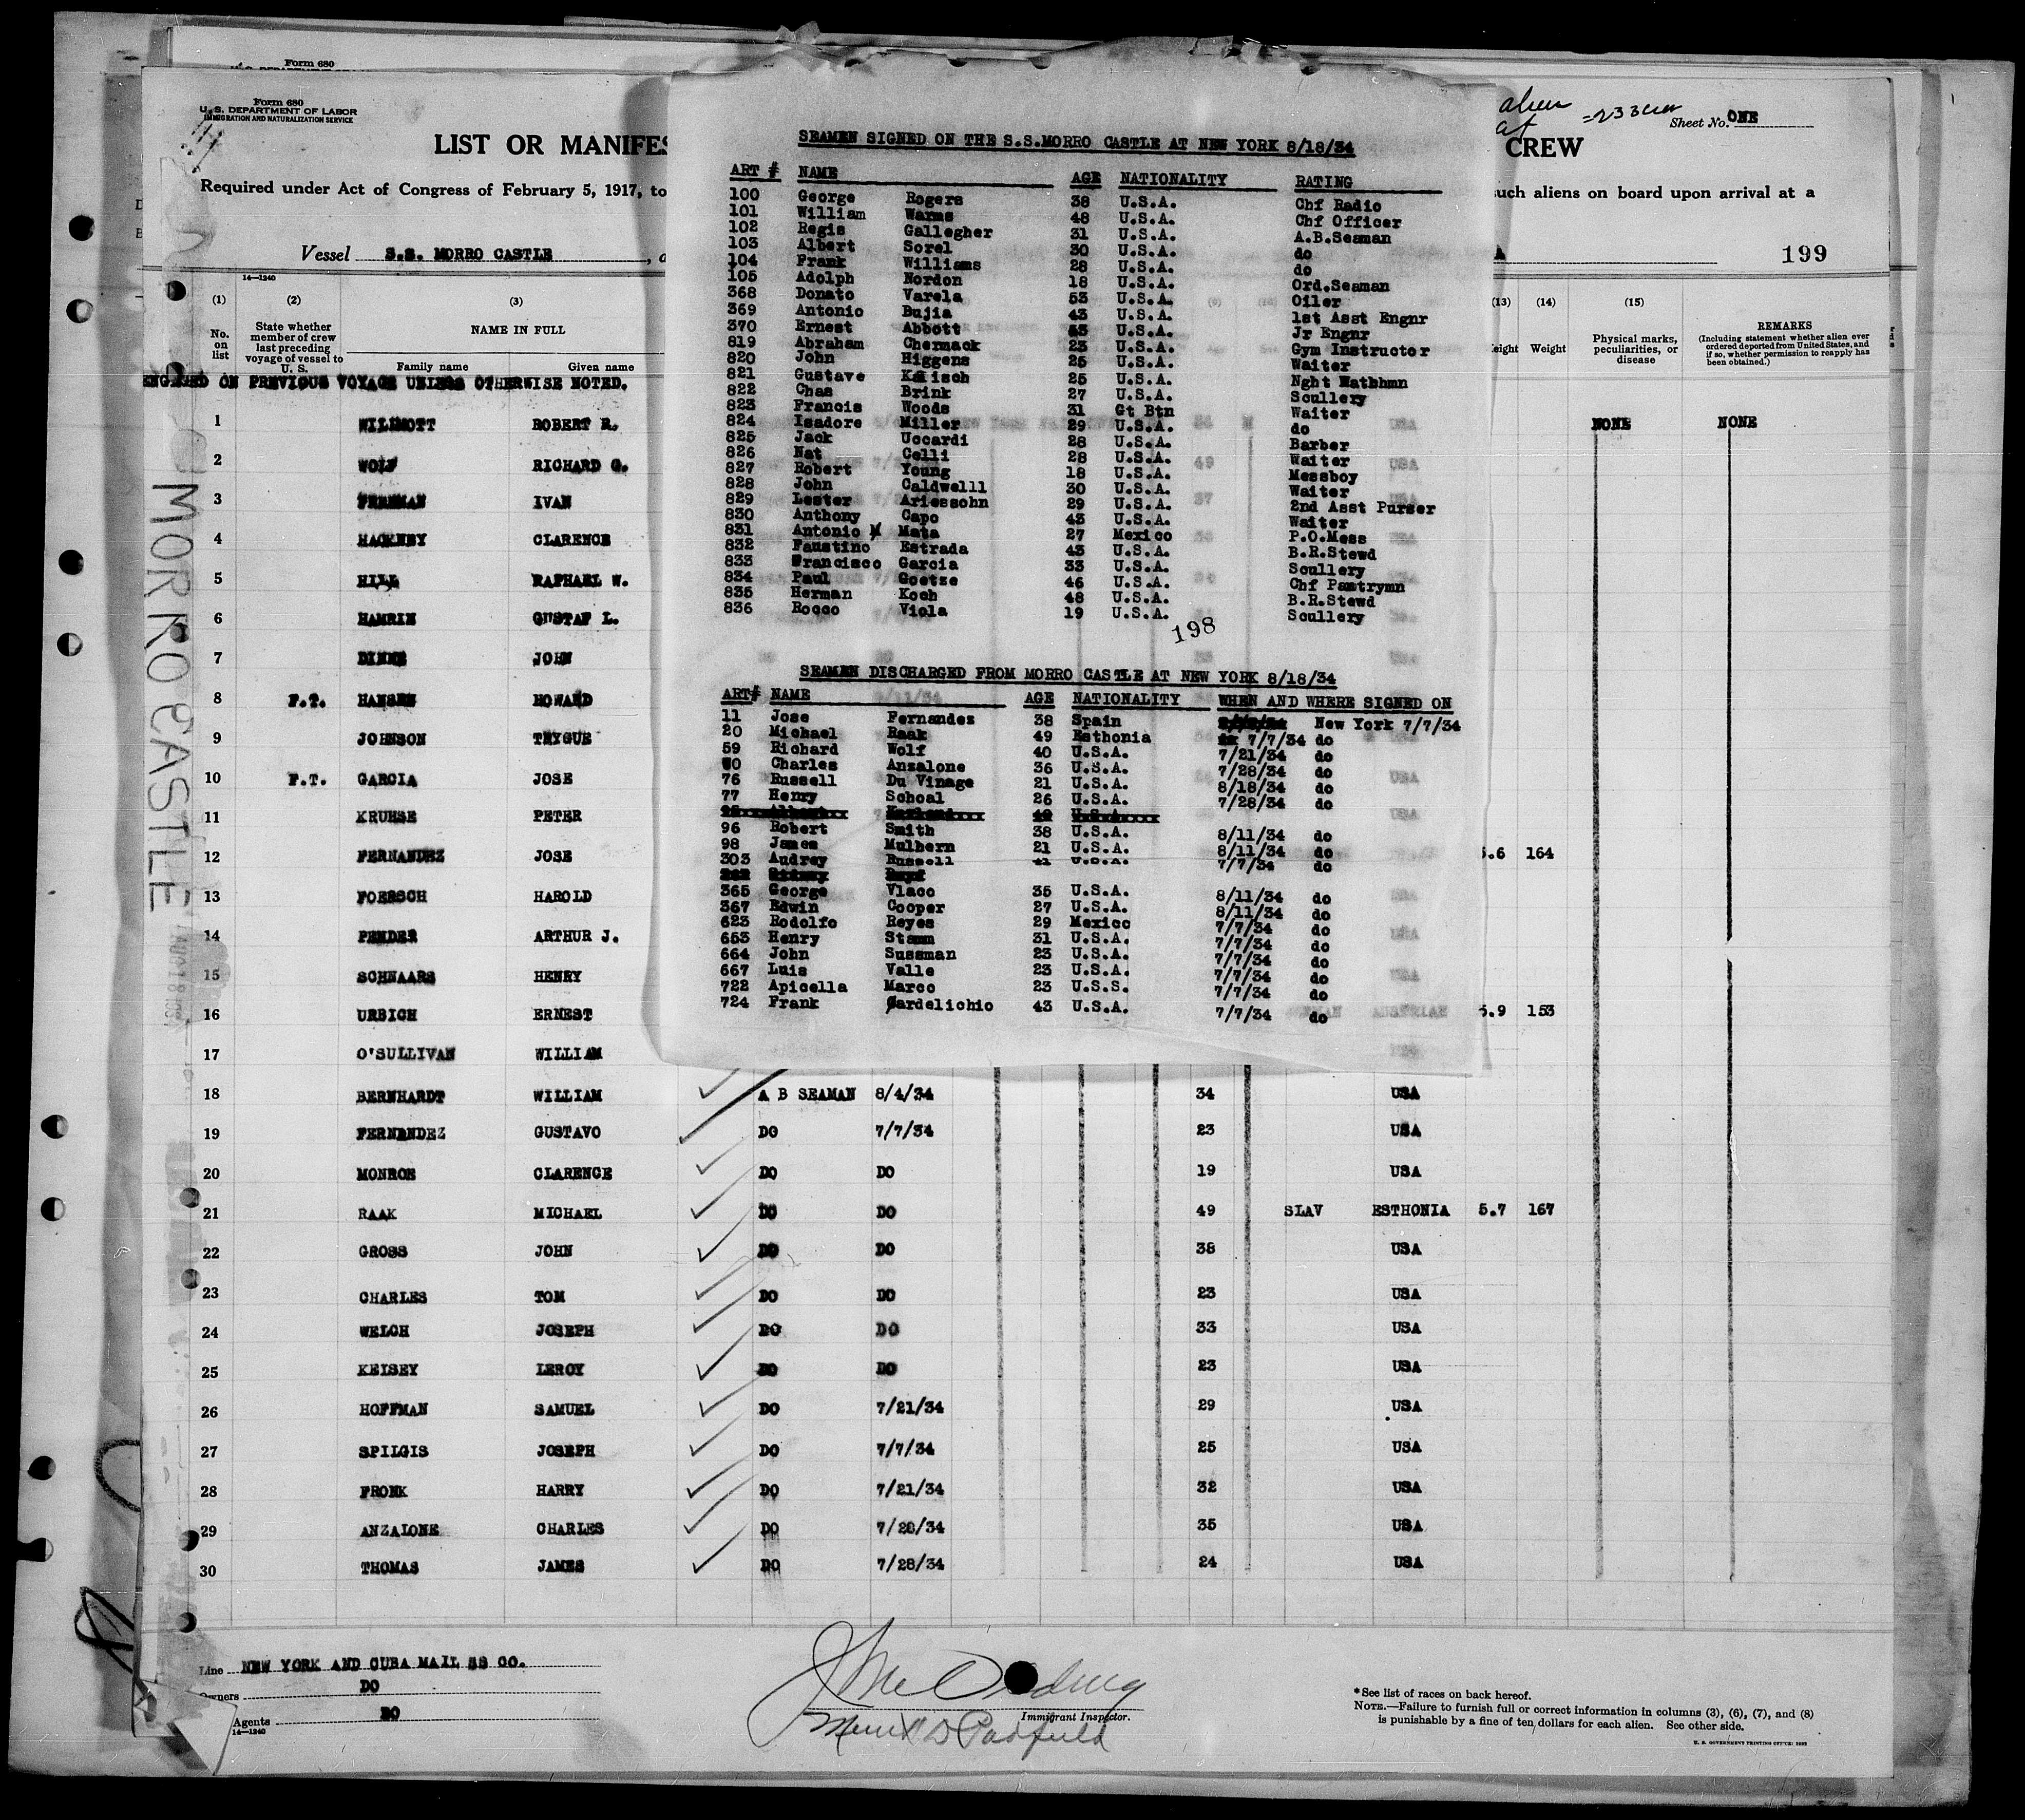 Form 680
Form 680
U. S. DEPARTMENT OF LABOR
IMMIGRATION AND NATURALIZATION SERVICE
LIST OR MANIFES
CREW
alien
=233
Sheet No. ONE
Required under Act of Congress of February 5, 1917, to
such aliens on board upon arrival at a
Vessel S.S. MORRO CASTLE
199
14—1240
(1) (2) (3) (13) (14) (15)
No. on list
State whether member of crew last preceding voyage of vessel to U. S.
NAME IN FULL
Family name Given name
Weight
Physical marks, peculiarities, or disease
REMARKS
(Including statement whether alien ever ordered deported from United States, and if so, whether permission to reapply has been obtained.)
ON PREVIOUS VOYAGE UNLESS OTHERWISE NOTED.
SEAMEN SIGNED ON THE S.S.MORRO CASTLE AT NEW YORK 8/18/34
ART # NAME AGE NATIONALITY RATING
100 George Rogers 38 U.S.A. Chf Radio
101 William Warms 48 U.S.A. Chf Officer
102 Regis Gallegher 31 U.S.A. A.B.Seaman
103 Albert Sorel 30 U.S.A. do
104 Frank Williams 28 U.S.A. do
105 Adolph Nordon 18 U.S.A. Ord.Seaman
368 Donato Varela 53 U.S.A. Oiler
369 Antonio Bujia 43 U.S.A. 1st Asst Engnr
370 Ernest Abbott U.S.A. Jr Engnr
819 Abraham Chermack 23 U.S.A. Gym Instructor
820 John Higgens 25 U.S.A. Waiter
821 Gustave 25 U.S.A. Nght
822 Chas Brink 27 U.S.A. Scullery
823 Francis Woods 31 Gt Btn Waiter
824 Isadore Miller 29 U.S.A. do
825 Jack Uccardi 28 U.S.A. Barber
826 Nat Celli 28 U.S.A. Waiter
827 Robert Young 18 U.S.A. Messboy
828 John Caldwelll 30 U.S.A. Waiter
829 Lester Ariessohn 29 U.S.A. 2nd Asst Purser
830 Anthony Capo 43 U.S.A. Waiter
831 Antonio Mata 27 Mexico P.O.Mess
832 Faustino Estrada 43 U.S.A. B.R.Stewd
833 Francisco Garcia 33 U.S.A. Scullery
834 Paul Goetze 46 U.S.A. Chf Pantrymn
835 Herman Koch 48 U.S.A. B.R.Stewd
836 Rocco Viola 19 U.S.A. Scullery
198
SEAMEN DISCHARGED FROM MORRO CASTLE AT NEW YORK 8/18/34
ART# NAME AGE NATIONALITY WHEN AND WHERE SIGNED ON
11 Jose Fernandez 38 Spain New York 7/7/34
20 Michael Raak 49 Esthonia 7/7/34 do
59 Richard Wolf 40 U.S.A. 7/21/34 do
Charles Anzalone 36 U.S.A. 7/28/34 do
76 Russell Du Vinage 21 U.S.A. 8/18/34 do
77 Henry Schoal 26 U.S.A. 7/28/34 do
96 Robert Smith 38 U.S.A. 8/11/34 do
98 James Mulhern 21 U.S.A. 8/11/34 do
303 Audrey Russell U.S.A. 7/7/34 do
365 George Vlaco 35 U.S.A. 8/11/34 do
367 Edwin Cooper 27 U.S.A. 8/11/34 do
623 Rodolfo Reyes 29 Mexico 7/7/34 do
653 Henry Stamm 31 U.S.A. 7/7/34 do
664 John Sussman 23 U.S.A. 7/7/34 do
667 Luis Valle 23 U.S.A. 7/7/34 do
722 Apicella Marco 23 U.S.S. 7/7/34 do
724 Frank Gardelichio 43 U.S.A. 7/7/34 do
1 WILLMOTT ROBERT R. NONE NONE
2 WOLF RICHARD G.
3 FREEMAN IVAN
4 HACKNEY CLARENCE
5 HILL RAPHAEL W.
6 HAMRIN GUSTAF L.
7 JOHN
8 F.T. HANSEN HOWARD
9 JOHNSON TRYGUE
10 F.T. GARCIA JOSE
11 KRUHSE PETER
12 FERNANDEZ JOSE 5.6 164
13 FOERSCH HAROLD
14 PENDER ARTHUR J.
15 SCHNAARS HENRY
16 URBICH ERNEST 5.9 153
17 O'SULLIVAN WILLIAM
18 BERNHARDT WILLIAM A B SEAMAN 8/4/34 34 USA
19 FERNANDEZ GUSTAVO DO 7/7/34 23 USA
20 MONROE CLARENCE DO DO 19 USA
21 RAAK MICHAEL DO DO 49 SLAV ESTHONIA 5.7 167
22 GROSS JOHN DO DO 38 USA
23 CHARLES TOM DO DO 23 USA
24 WELCH JOSEPH DO DO 33 USA
25 KELSEY LEROY DO DO 23 USA
26 HOFFMAN SAMUEL DO 7/21/34 29 USA
27 SPILGIS JOSEPH DO 7/7/34 25 USA
28 FRONK HARRY DO 7/21/34 32 USA
29 ANZALONE CHARLES DO 7/28/34 35 USA
30 THOMAS JAMES DO 7/28/34 24 USA
MORRO CASTLE
Line NEW YORK AND CUBA MAIL SS CO.
Owners DO
Agents DO
14—1240
Immigrant Inspector.
*See list of races on back hereof.
NOTE.—Failure to furnish full or correct information in columns (3), (6), (7), and (8)
is punishable by a fine of ten dollars for each alien. See other side.